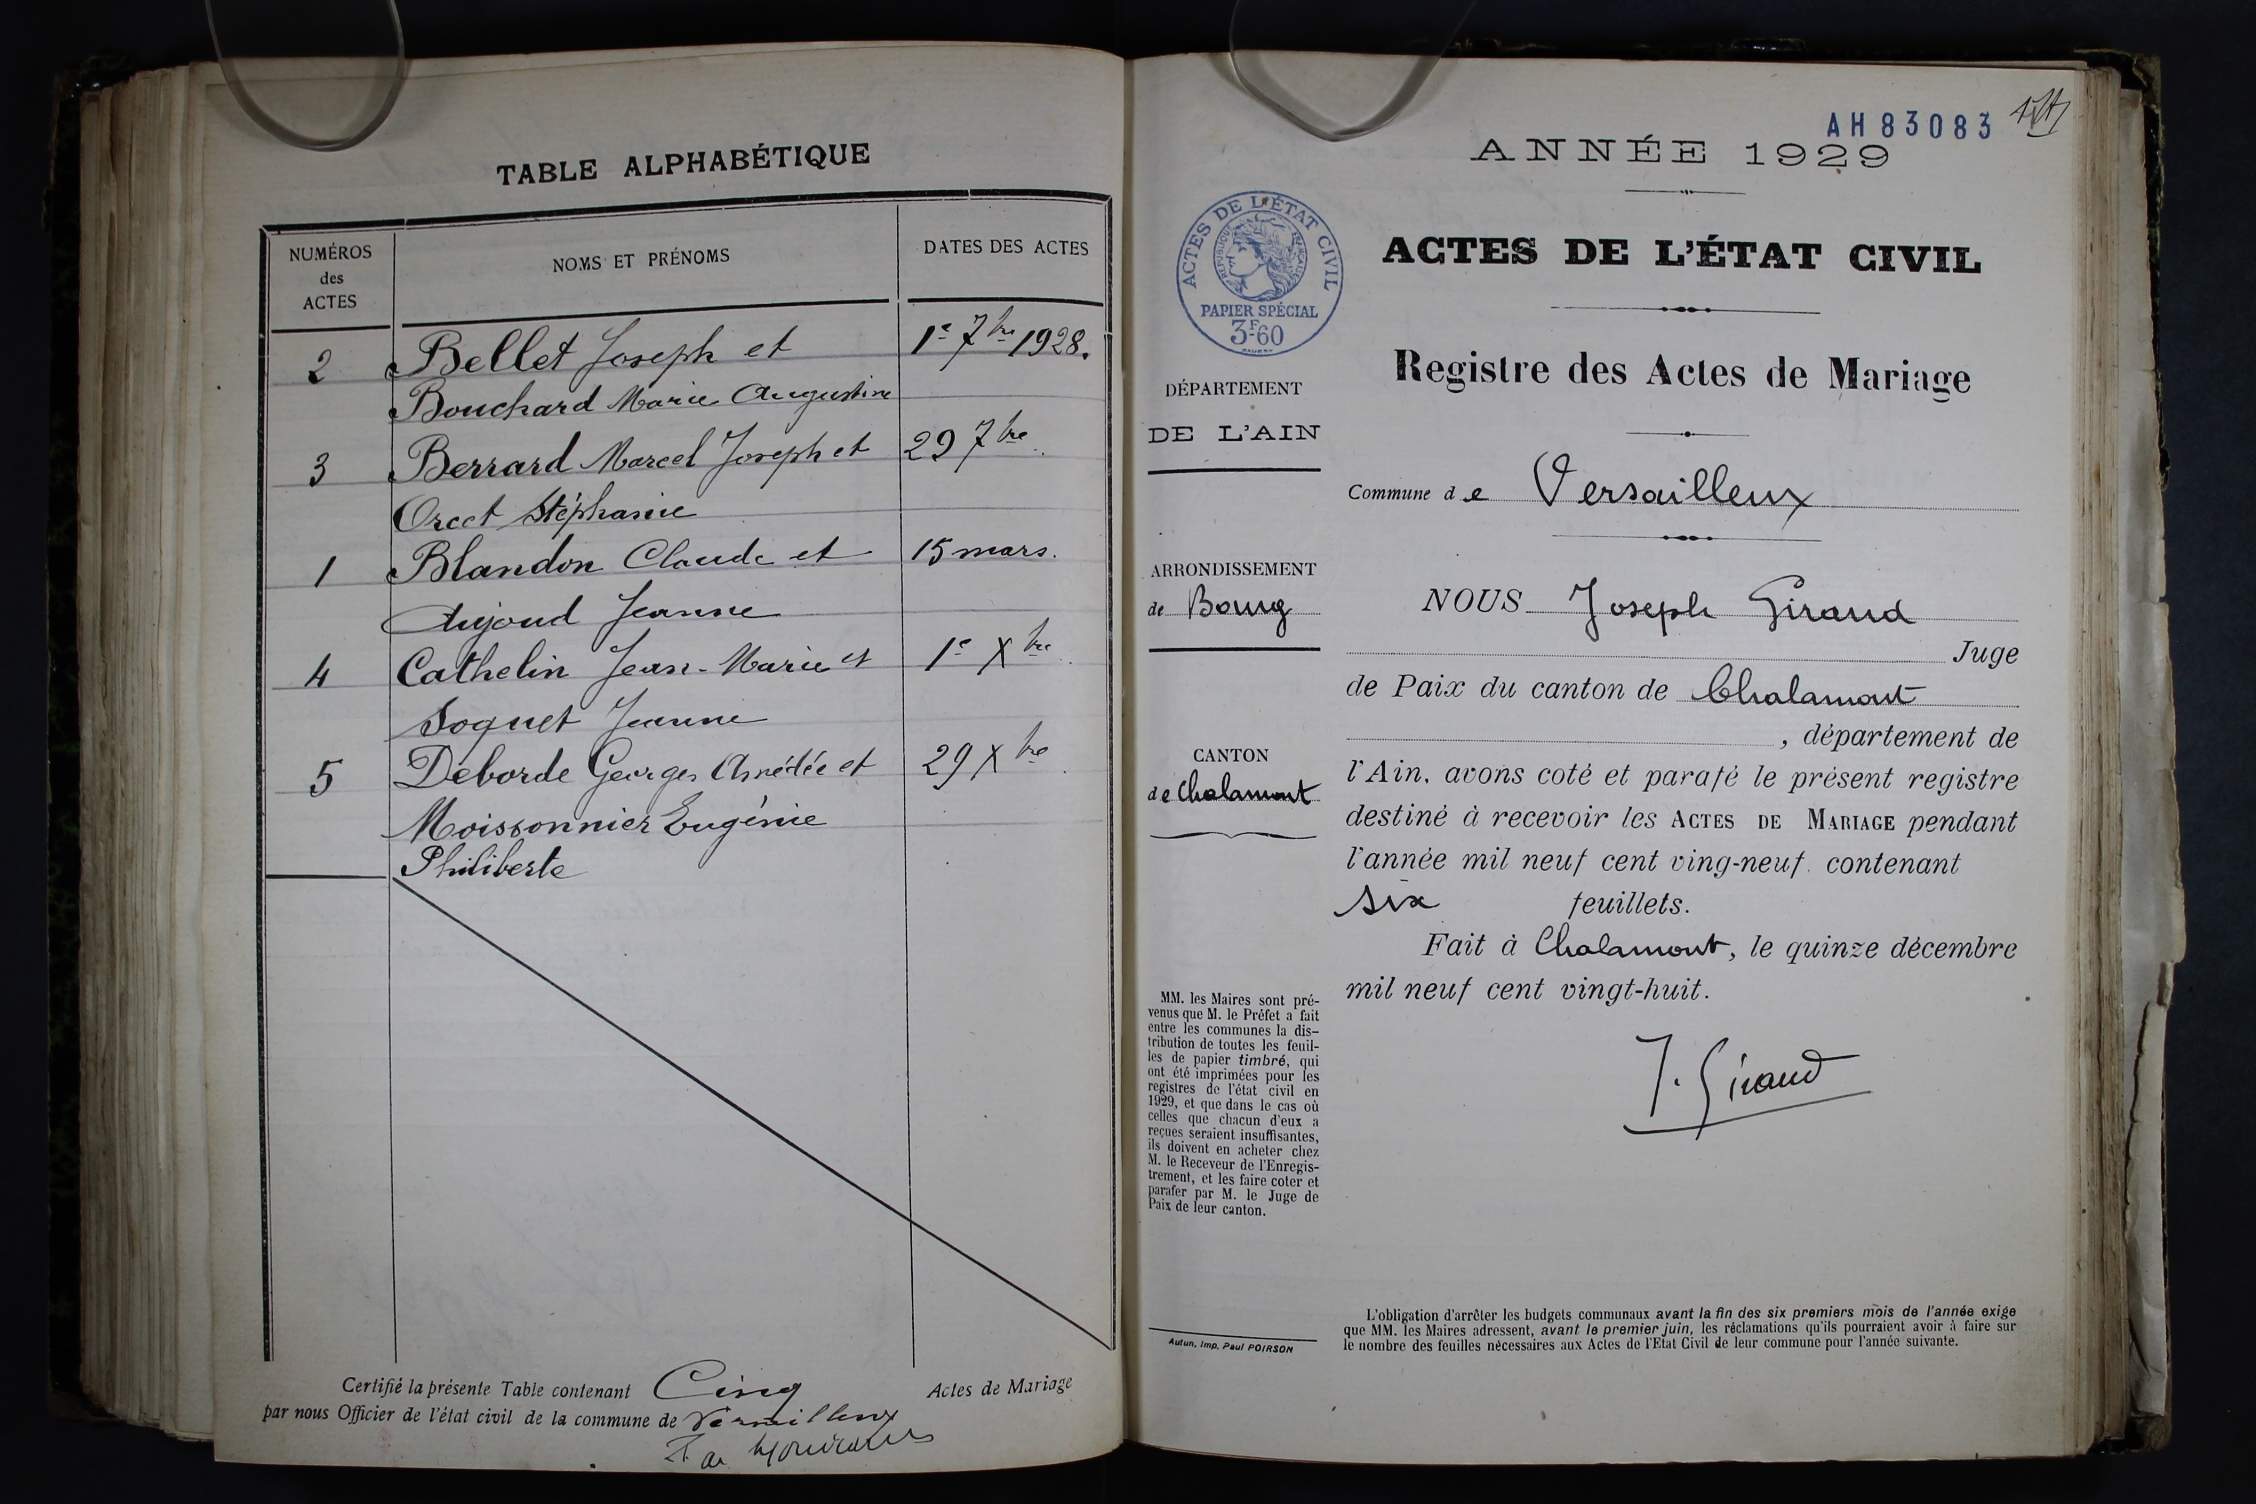 TABLE ALPHABÉTIQUE
NUMÉROS
des
ACTES
NOMS ET PRÉNOMS
DATES DES ACTES
2 Bellet Joseph et 1e 7bre 1928.
Bouchard Marie Augustine
3 Berrard Marcel Joseph et 29 7bre
Orcet Stéphanie
1 Blandon Claude et 15 mars.
Aujoud Jeanne
4 Cathelin Jean-Marie et 1e Xbre
Soquet Jeanne
5 Déborde Georges Amédée et 29 Xbre
Moissonnier Eugénie
Philiberte
Certifié la présente Table contenant Cinq Actes de Mariage
par nous Officier de l'état civil de la commune de Versailleux
AH 83083
ANNÉE 1929
ACTES DE L'ÉTAT CIVIL
RÉPUBLIQUE FRANÇAISE
PAPIER SPÉCIAL
3F60
ACTES DE L'ÉTAT CIVIL
Registre des Actes de Mariage
DÉPARTEMENT
DE L'AIN
Commune de Versailleux
ARRONDISSEMENT
de Bourg
CANTON
de Chalamont
NOUS Joseph Giraud
Juge
de Paix du canton de Chalamont
, département de
l'Ain, avons coté et parafé le présent registre
destiné à recevoir les ACTES DE MARIAGE pendant
l'année mil neuf cent ving-neuf, contenant
six feuillets.
Fait à Chalamont, le quinze décembre
mil neuf cent vingt-huit.
J. Giraud
MM. les Maires sont pré-
venus que M. le Préfet a fait
entre les communes la dis-
tribution de toutes les feuil-
les de papier timbré, qui
ont été imprimées pour les
registres de l'état civil en
1929, et que dans le cas où
celles que chacun d'eux a
reçues seraient insuffisantes,
ils doivent en acheter chez
M. le Receveur de l'Enregis-
trement, et les faire coter et
parafer par M. le Juge de
Paix de leur canton.
Autun, Imp. Paul POIRSON
L'obligation d'arrêter les budgets communaux avant la fin des six premiers mois de l'année exige
que MM. les Maires adressent, avant le premier juin, les réclamations qu'ils pourraient avoir à faire sur
le nombre des feuilles nécessaires aux Actes de l'Etat Civil de leur commune pour l'année suivante.